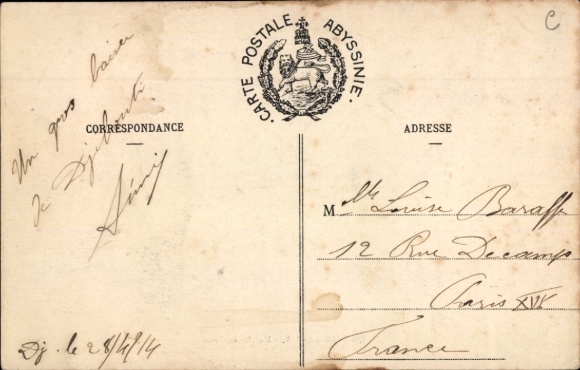 C
CARTE POSTALE ABYSSINIE.
CORRESPONDANCE
ADRESSE
Un gros baiser
de Djibouti
Dj. le 28/4/14
Mlle Louise Baraffe
12 Rue Decamp
Paris XVI
France